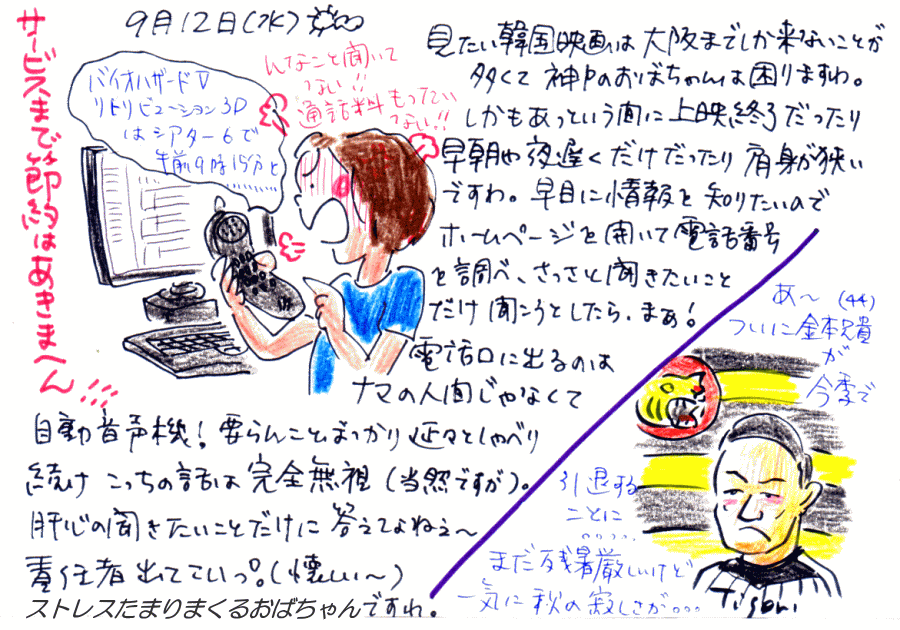 9月12日(水)
サービスまで節約はあきまへん!!!
バイオハザードⅤ
リトリビューション3D
はシアター6で
午前9時15分と
んなこと聞いて
ない!!
通話料もったい
ない!!
見たい韓国映画は大阪までしか来ないことが
多くて神戸のおばちゃんは困りますわ。
しかもあっという間に上映終了だったり
早朝や夜遅くだけだったり肩身が狭い
ですわ。早目に情報を知りたいので
ホームページを開いて電話番号
を調べ、さっさと聞きたいこと
だけ聞こうとしたら、まぁ!
電話口に出るのは
ナマの人間じゃなくて
自動音声機!要らんことばっかり延々としゃべり
続け こっちの話は完全無視(当然ですが)。
肝心の聞きたいことだけに答えてよねぇ〜
責任者出てこいっ。(懐しい〜)
ストレスたまりまくるおばちゃんですわ。
あ〜 (44)
ついに金本兄貴
が
今季で
引退する
ことに
まだ残暑厳しいけど
一気に秋の寂しさが。。。
Tigers